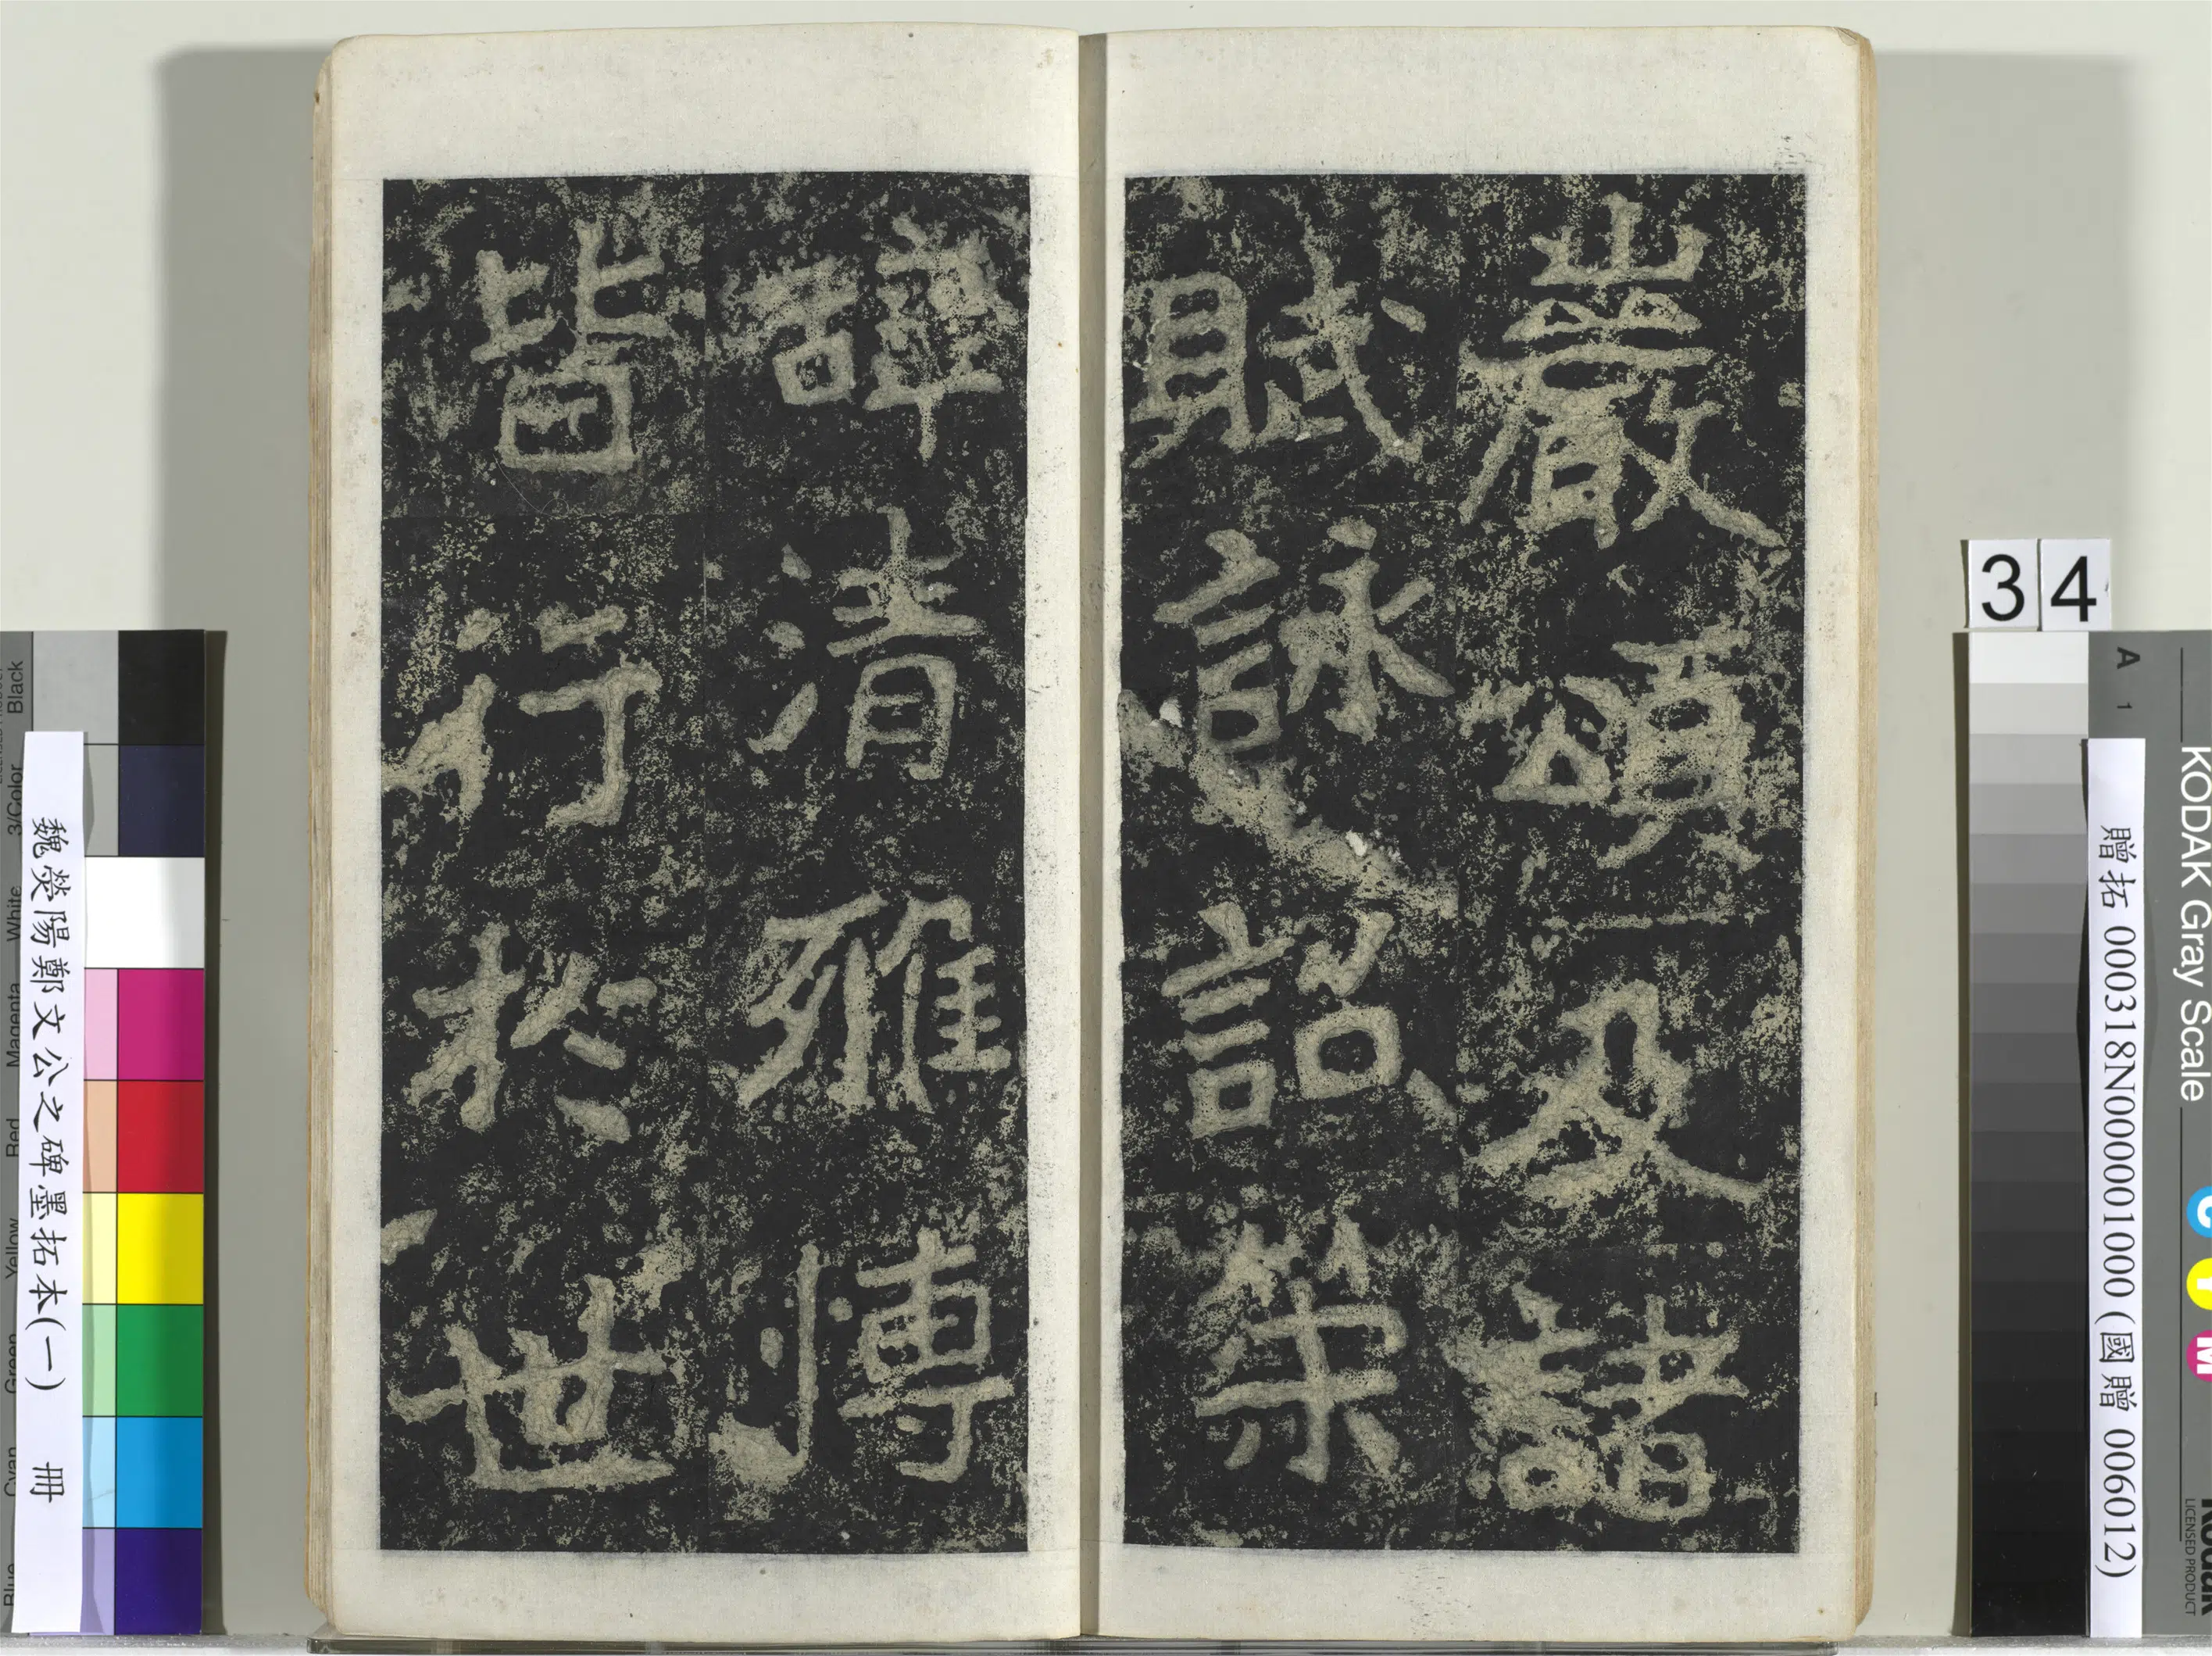 巖頌及諸
賦詠詔策
辭清雅博
皆行於世
魏滎陽鄭文公之碑墨拓本(一) 冊
34
贈拓 000318N000001000 (國贈 006012)
KODAK Gray Scale
A 1
C
Y
M
Kodak
LICENSED PRODUCT
Black
3/Color
White
Magenta
Red
Yellow
Green
Cyan
Blue